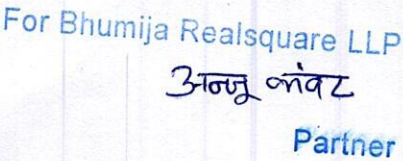 For Bhumija Realsquare LLP
अन्जू कंवर
Partner